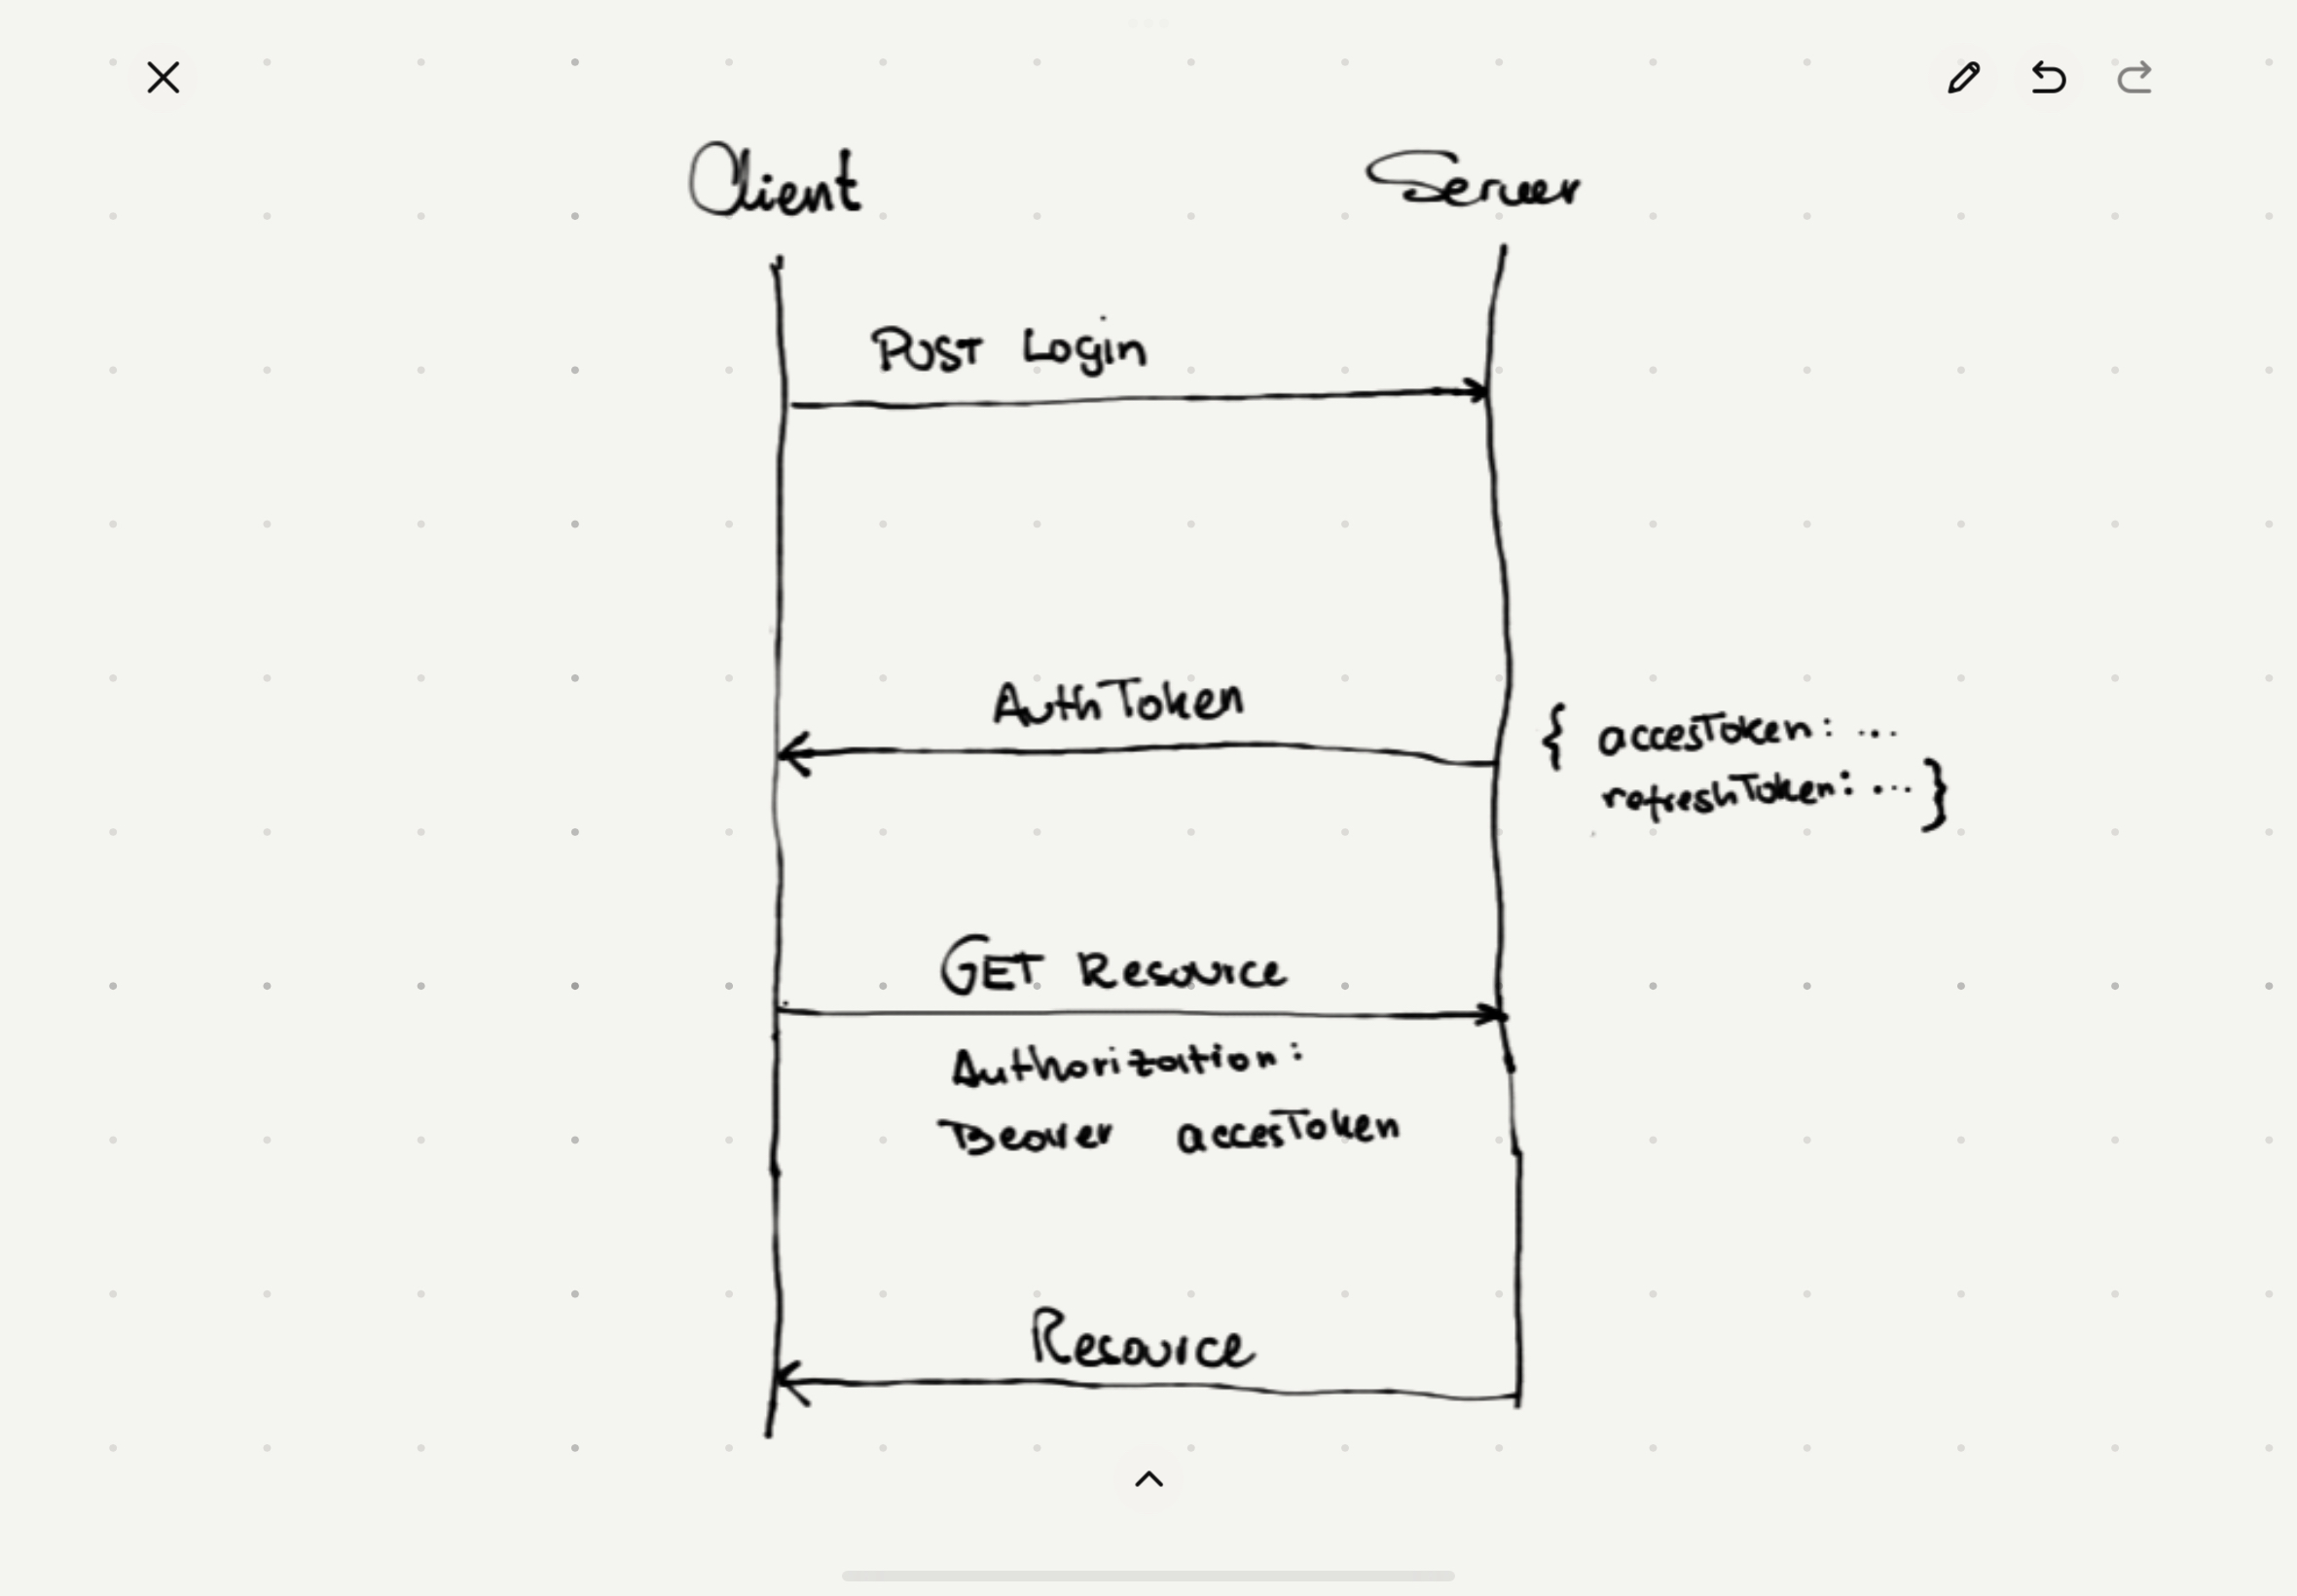 Client
Server
POST Login
AuthToken
{ accesToken: ...
refreshToken: ... }
GET Resource
Authorization:
Bearer accesToken
Resource